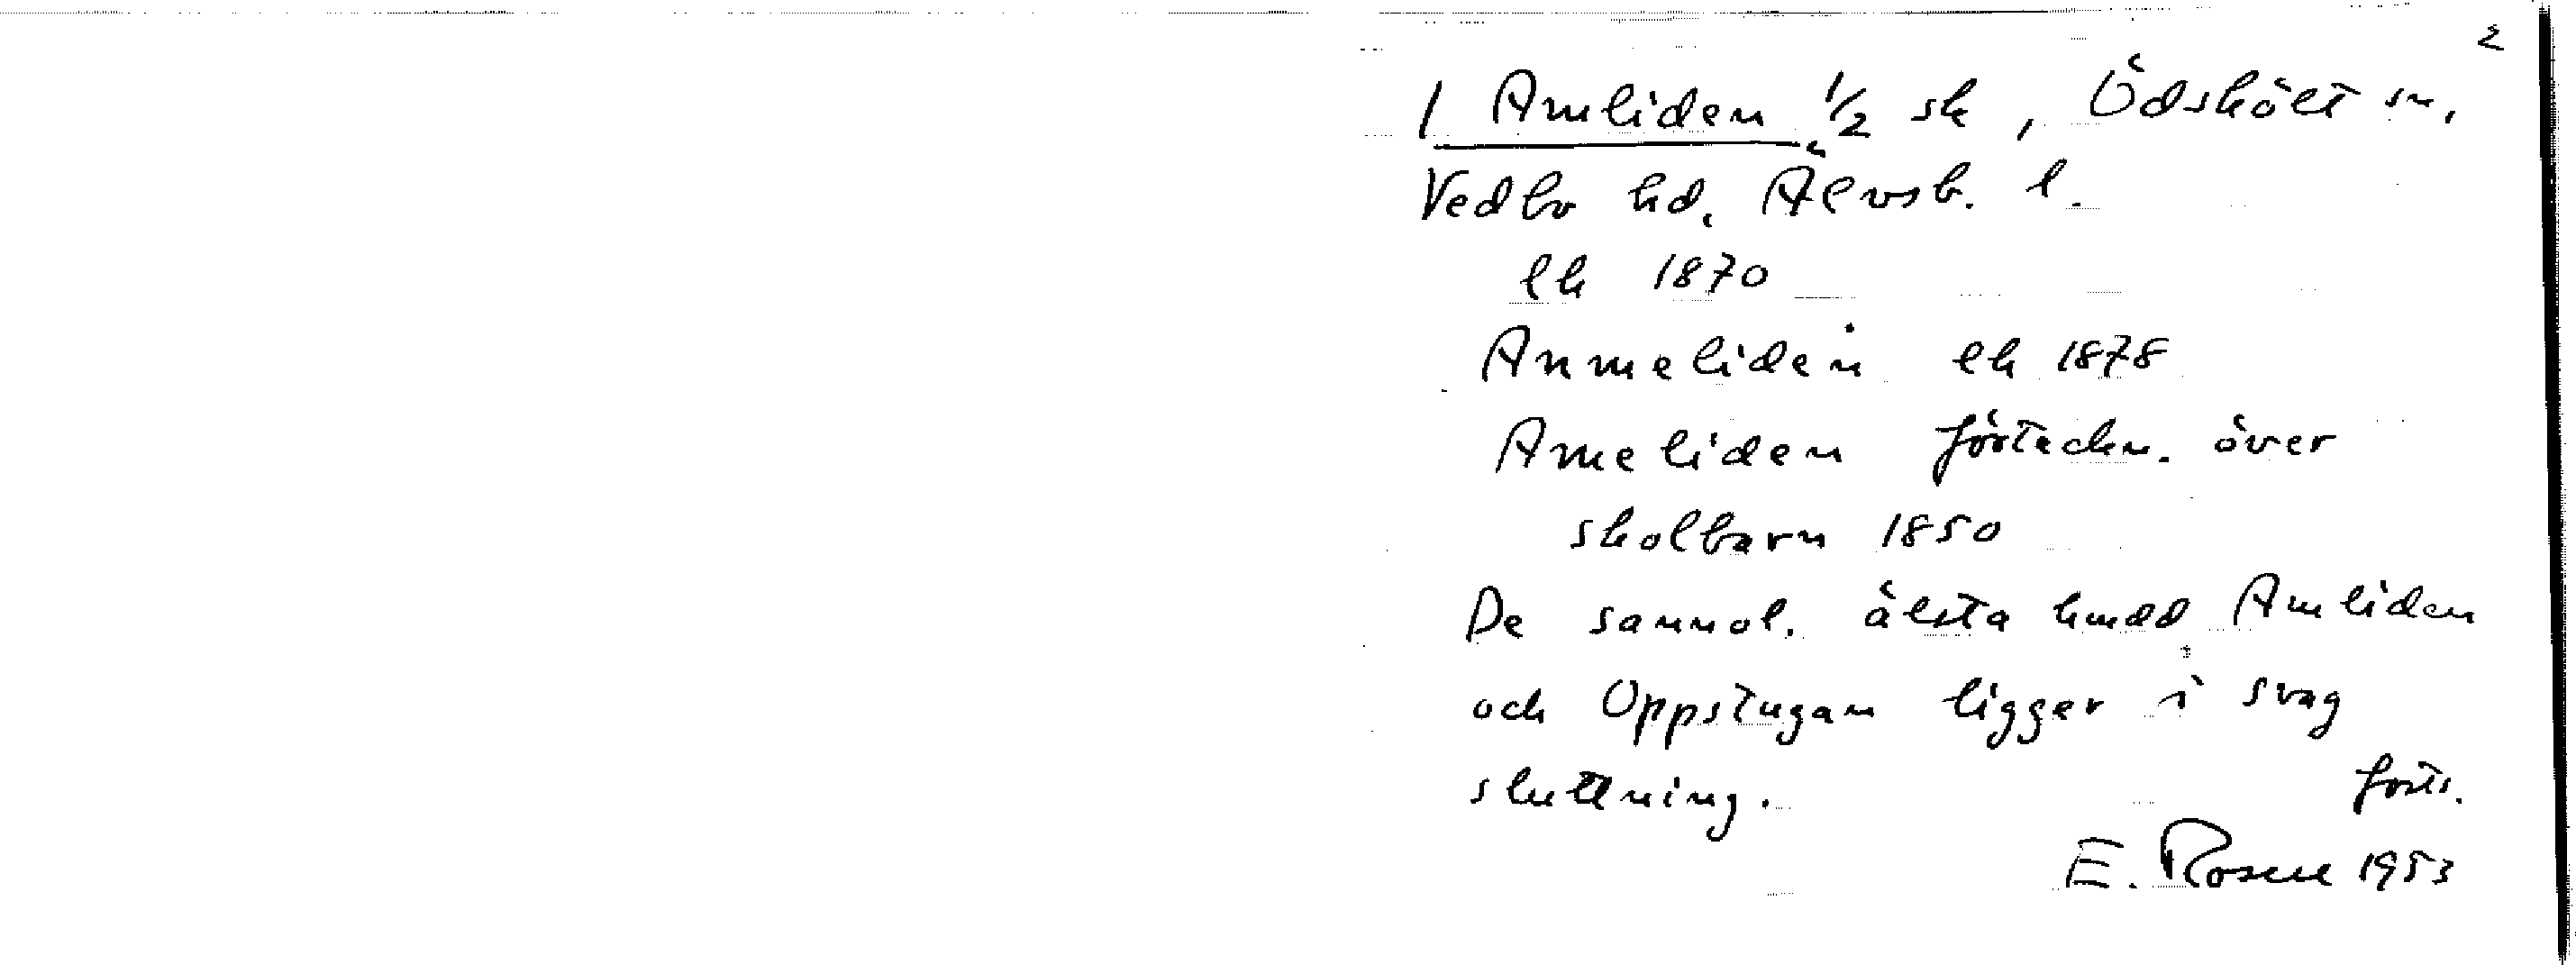 2
1 Amliden 1/2 sk, Ödskölt sn,
Vedbo hd, Älvsb. l.
lk 1870
Anmeliden lk 1878
Ameliden förteckn. över
skolbarn 1850
De sannol. älsta hmdd Amliden
och Uppstugan ligger i svag
sluttning. forts.
E. Rosell 1953